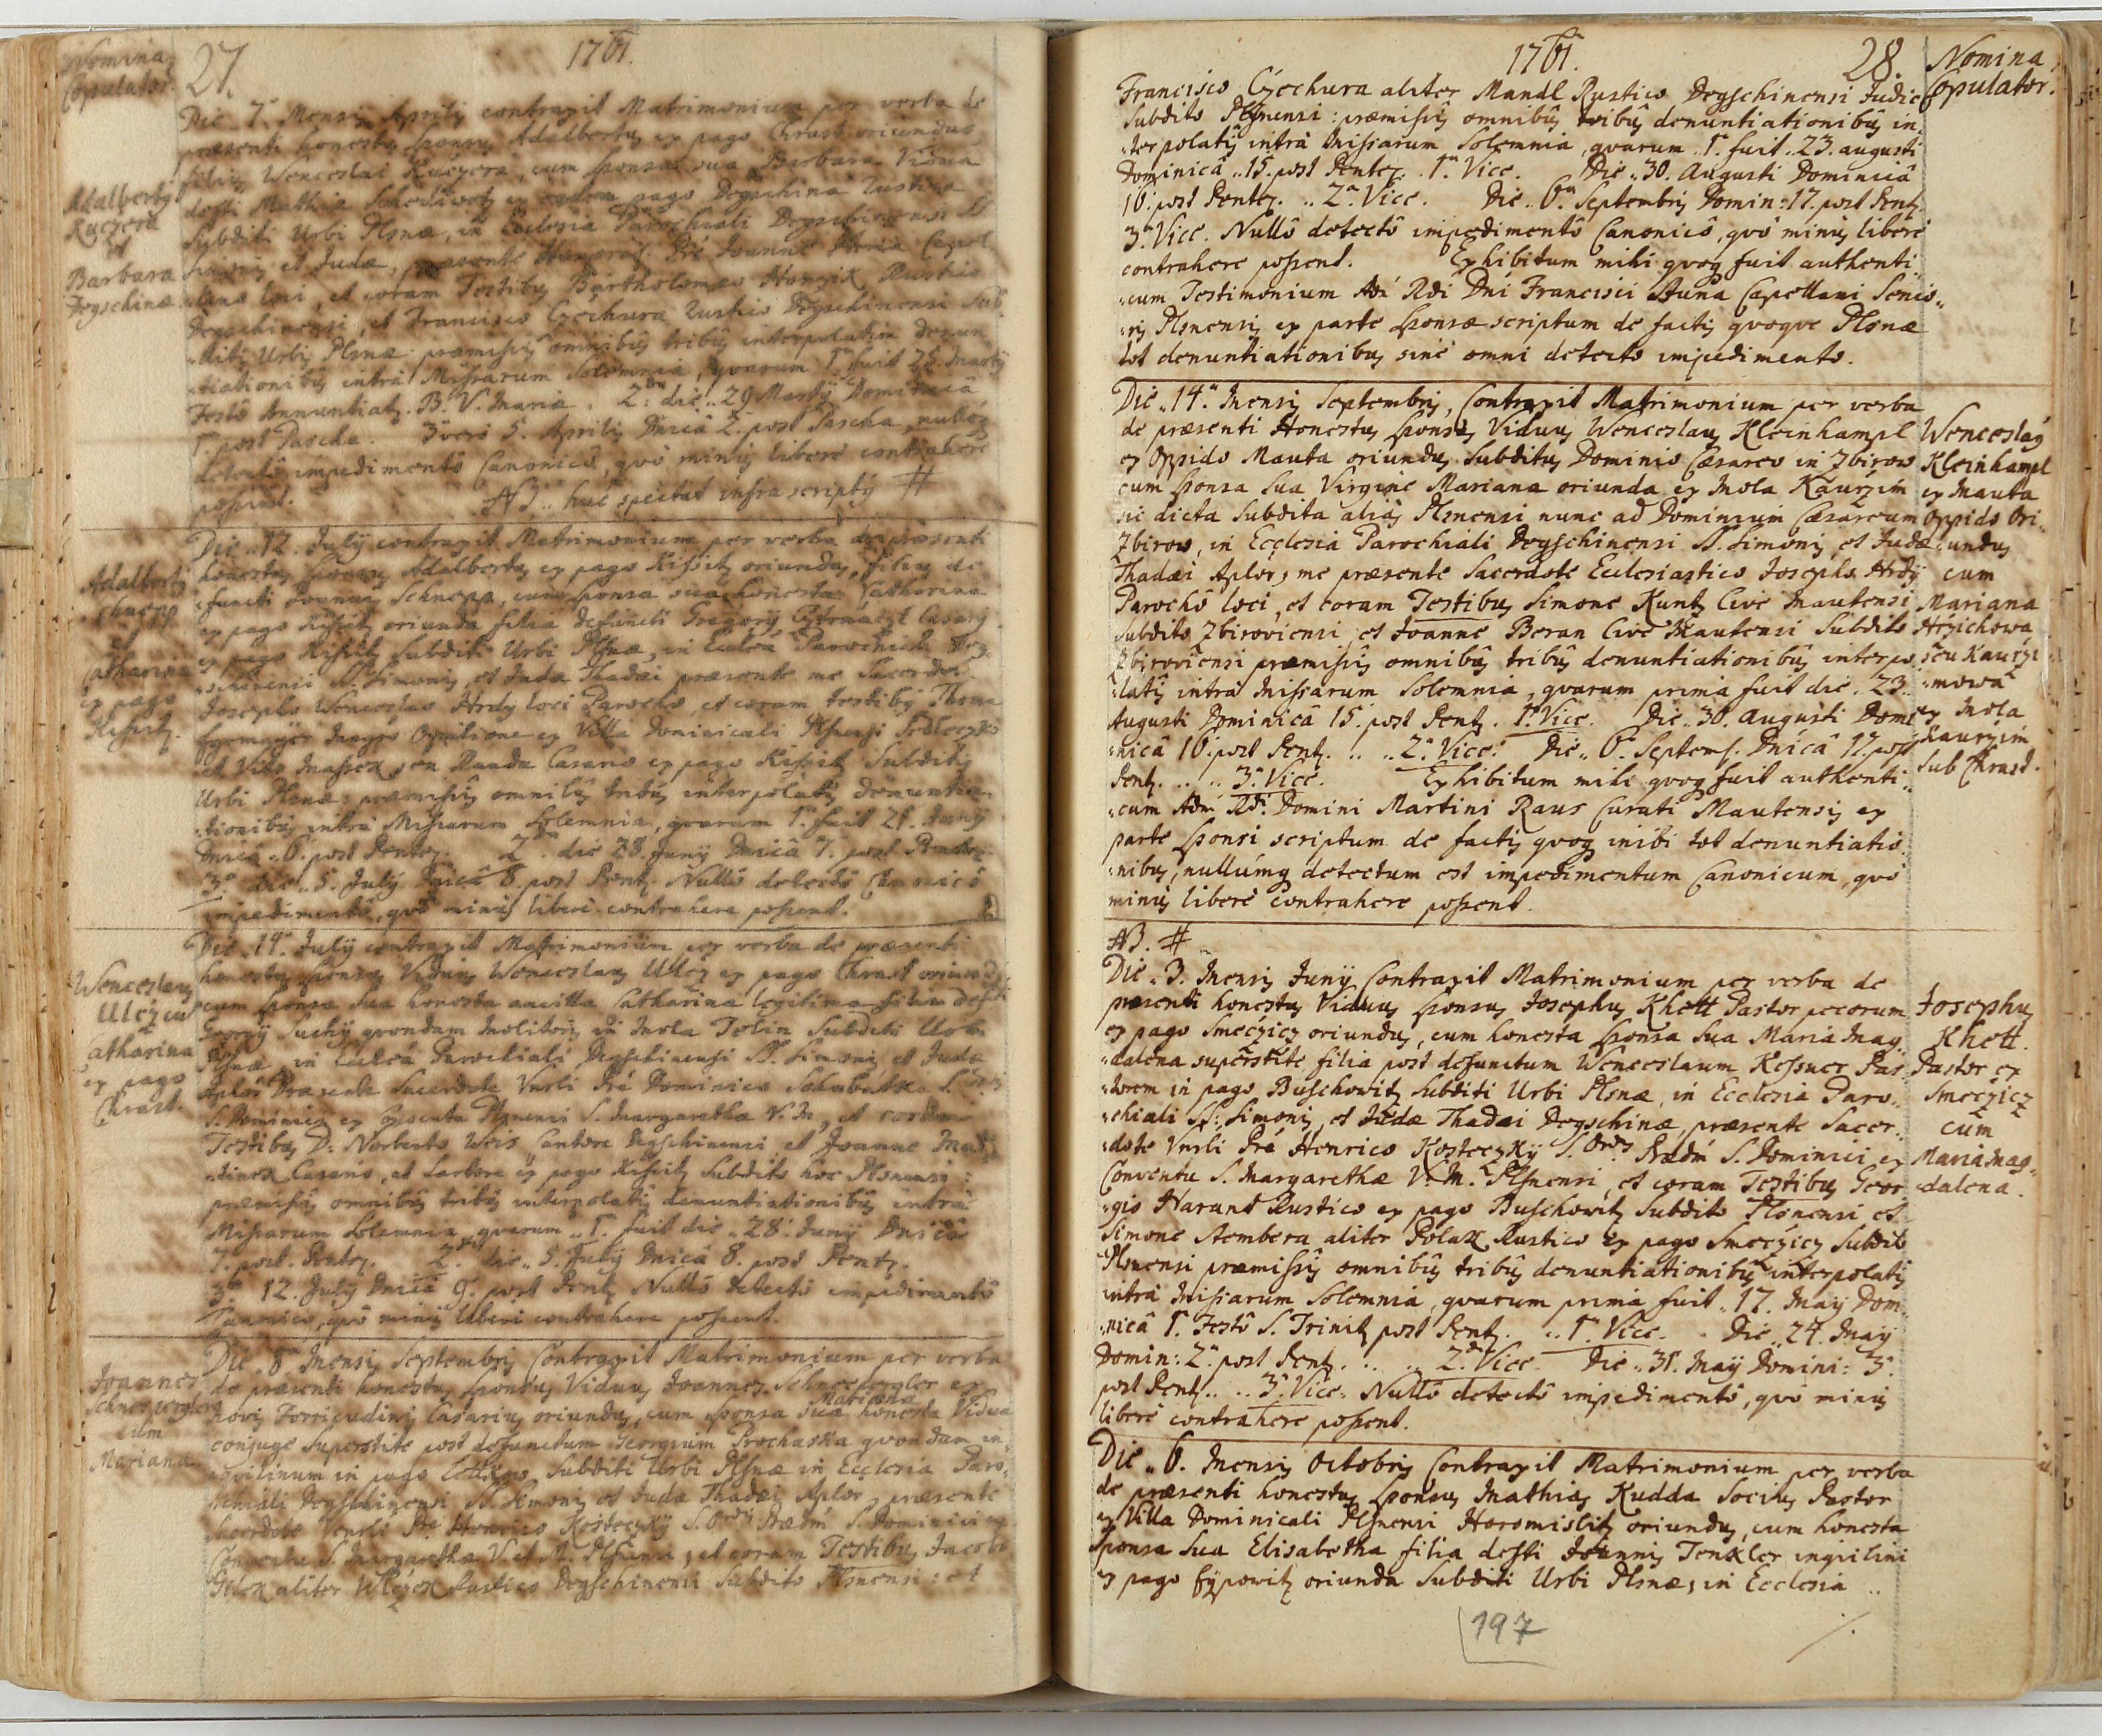 Nomina
Copulator.
27.
1761.
Die 7. Mensis Aprilis contraxit Matrimonium per verba de
præsenti honestus sponsus Adalbertus ex pago Chrast oriundus
filius Wenceslai Kuczera, cum sponsa sua Barbara Vidua
ex eodem pago Degschina Rustica
Subditi Urbi Plsnæ, in Ecclesia Parochiali Degschinensi SS.
Simonis et Judæ, præsente
loci, et coram Testibus Bartholomæo Rustico
Degschinensi, et Francisco Czechura Rustico Degschinensi Sub-
-diti Urbis Plsnæ præmissis omnibus tribus interpolatim denun-
-tiationibus intra Missarum Solemnia, quarum 1. fuit 25. Marty
Festo Annuntiat. B. V. Mariæ. 2. die 29 Marty Dominica
1. post Pascha. 3 vero 5. Aprilis Dnica 2. post Pascha, nullo
detecto impedimento Canonico, quo minus libere contrahere
possent. NB. huc spectat infra scriptus #
Adalbertus
Kuczera
et
Barbara
Degschinæ
Die 12. July contraxit Matrimonium per verba de præsenti
honestus sponsus Adalbertus ex pago Kissitz oriundus, filius de-
-functi Joannis Schnepp, cum sponsa sua honesta Catharina
ex pago Kissitz oriunda filia defuncti Gregory
ex pago Kissitz Subditi Urbi Plsnæ, in Eccl̃a Parochiali Deg-
-schinensi SS. Simonis et Judæ Thadæi præsente me Sacerdote
Josepho Wenceslao Hrdy loci Parocho, et coram testibus Thoma
ex Villa Dominicali Plsnensi
et Vito ex pago Kissitz Subditis
Urbi Plsnæ: præmissis omnibus tribus interpolatis denuntia-
-tionibus intra Missarum Solemnia, quarum 1. fuit 21. Juny
Dnica 6. post Pentec. 2. die 28. Juny Dnica 7. post Pentec.
3. die 5. July Dnica 8. post Pent. Nullo detecto Canonico
impedimento, quo minus libere contrahere possent.
Adalbertus
Schnepp
et
Catharina
ex pago
Kissitz.
Die 14. July contraxit Matrimonium per verba de præsenti
honestus sponsus Viduus Wenceslaus Ulcz ex pago Chrast oriundus
cum sponsa sua honesta ancilla Catharina legitima filia
Georgy Suchy quondam Molitoris in Mola Tolin Subditi Urbi
Plsnæ, in Eccl̃ia Parochiali Degschinensi SS. Simonis et Judæ
Aplor̃ Præsente Sacerdote Vnrli Pré Dominico S.
S. Dominici ex Conventu Plsnensi S. Margarethæ V. M., et coram
Testibus D: Norberto Weis Cantore Degschinensi et Joanne
ex pago Kissitz Subdito hoc Plsnensi:
præmissis omnibus tribus interpolatis denuntiationibus intra
Missarum Solemnia, quarum 1. fuit die 28. Juny Dnica
7. post. Pentec. 2. die 5. July Dnica 8. post Pentec.
3. 12. July Dnica 9. post Pent. Nullo detecto impedimento
Canonico, quo minus libere contrahere possent.
Wenceslaus
Ulcz cum
Catharina
ex pago
Chrast
Die 8. Mensis Septembris Contraxit Matrimonium per verba
de præsenti honestus sponsus Viduus Joannes Schnesbergler ex
oriundus, cum sponsa sua Mariana honesta Vidua
conjuge superstite post defunctum Georgium Prochaska quondam in-
-quilinum in pago Subditi Urbi Plsnæ in Ecclesia Paro-
-chiali Degschinensi SS. Simonis et Judæ Thadæi Aplor, præsente
Sacerdote Venrli Pré Henrico Kosteczky S. Ords Prædm S. Dominici ex
Conventu S. Margarethæ V. et M. Plsnensi, et coram Testibus Jacobo
aliter Rustico Degschinensi Subdito Plsnensi: et
Joannes
Schnesbergler
cum
Mariana
1761.
28.
Nomina
Copulator.
Francisco Czechura aliter Mandl Rustico Degschinensi Judice
Subdito Plsnensi: præmissis omnibus tribus denuntiationibus in-
-terpolatis intra Missarum Solemnia, quarum 1. fuit 23. augusti
Dominicâ 15. post Pentec. 1. Vice. Die 30. Augusti Dominicâ
16. post Pentec. 2. Vice. Die 6. Septembris Domin: 17. post Pent.
3. Vice. Nullô detectô impedimentô Canonicô, quô minus libere
contrahere possent. Exhibitum mihi quoq fuit authenti-
-cum Testimonium Adi Rdi Dni Francisci Auna Capellani Senio-
-ris Plsnensis ex parte sponsæ scriptum de factis quoque Plsnæ
tot denuntiationibus sine omni detecto impedimento.
Die 14. Mensis Septembris, Contraxit Matrimonium per verba
de præsenti Honestus sponsus Viduus Wenceslaus Kleinhampl
ex Oppido Mauta oriundus Subditus Dominio Cæsareo in Zbirow
cum sponsa sua Virgine Mariana oriunda ex Mola Kaurzim
sic dicta Subdita aliàs Plsnensi nunc ad Dominium Cæsareum
Zbirow, in Ecclesia Parochiali Degschinensi SS. Simonis et Judæ
Thadæi Aplor, me præsente Sacerdote Ecclesiastico Josepho Hrdy
Parochô loci, et coram Testibus Simone Kuntz Cive Mautensi
Subdito Zbiroviensi, et Joanne Beran Cive Mautensi Subdito
Zbiroviensi præmissis omnibus tribus denuntiationibus interpo-
-latis intra Missarum Solemnia, quarum prima fuit die 23.
Augusti Dominicâ 15. post Pent. 1. Vice. Die 30. augusti Domi-
-nicâ 16. post Pent. 2. Vice. Die 6. Septemb. Dnicâ 17. post
Pent. 3. Vice. Exhibitum mihi quoq fuit authenti-
-cum Adm Rdi Domini Martini Raus Curati Mautensis ex
parte sponsi scriptum de factis quoq inibi tot denuntiatio-
-nibus, nullumq detectum est impedimentum Canonicum, quo
minus libere contrahere possent.
Wenceslaus
Kleinhampl
ex Mauta
Oppido Ori-
-undus
cum
Mariana
Hrzichowa
seu Kaurzi-
-mowa
ex Mola
Kaurzim
sub Chrast.
NB. #
Die 3. Mensis Juny Contraxit Matrimonium per verba de
præsenti honestus Viduus sponsus Josephus Khett Pastor pecorum
ex pago Smeczicz oriundus, cum honesta sponsa sua Maria Mag-
-dalena superstite filia post defunctum Wenceslaum Kessner Pas-
-torem in pago Buschowitz Subditi Urbi Plsnæ, in Ecclesia Paro-
-chiali SS. Simonis, et Judæ Thadæi Degschinæ, præsente Sacer-
-dote Vnrli Pré Henrico Kosteczky S. Ords Prædm S. Dominici ex
Conventu S. Margarethæ V. M. Plsnensi, et coram Testibus Geor-
-gio Harant Rustico ex pago Buschowitz Subdito Plsnensi et
Simone Stembera aliter Polak Rustico ex pago Smeczicz Subdito
Plsnensi præmissis omnibus tribus denuntiationibus interpolatis
intra Missarum Solemnia, quarum prima fuit 17. May Dom-
-nicâ 1. Festô S. Trinit. post Pent. 1. Vice. Die 24. May
Domin: 2. post Pent. 2. Vice. Die 31. May Domini: 3.
post Pent. 3. Vice. Nullô detectô impedimentô, quo minus
libere contrahere possent.
Josephus
Khett
Pastor ex
Smeczicz
cum
Maria Mag-
-dalena.
Die 6. Mensis Octobris Contraxit Matrimonium per verba
de præsenti honestus sponsus Mathias Kudda Socius Pastor
ex Villa Dominicali Plsnensi Horomislitz oriundus, cum honesta
sponsa sua Elisabetha filia defti Joannis Tenkler inquilini
ex pago Eypowitz oriunda Subditi Urbi Plsnæ, in Ecclesia
197